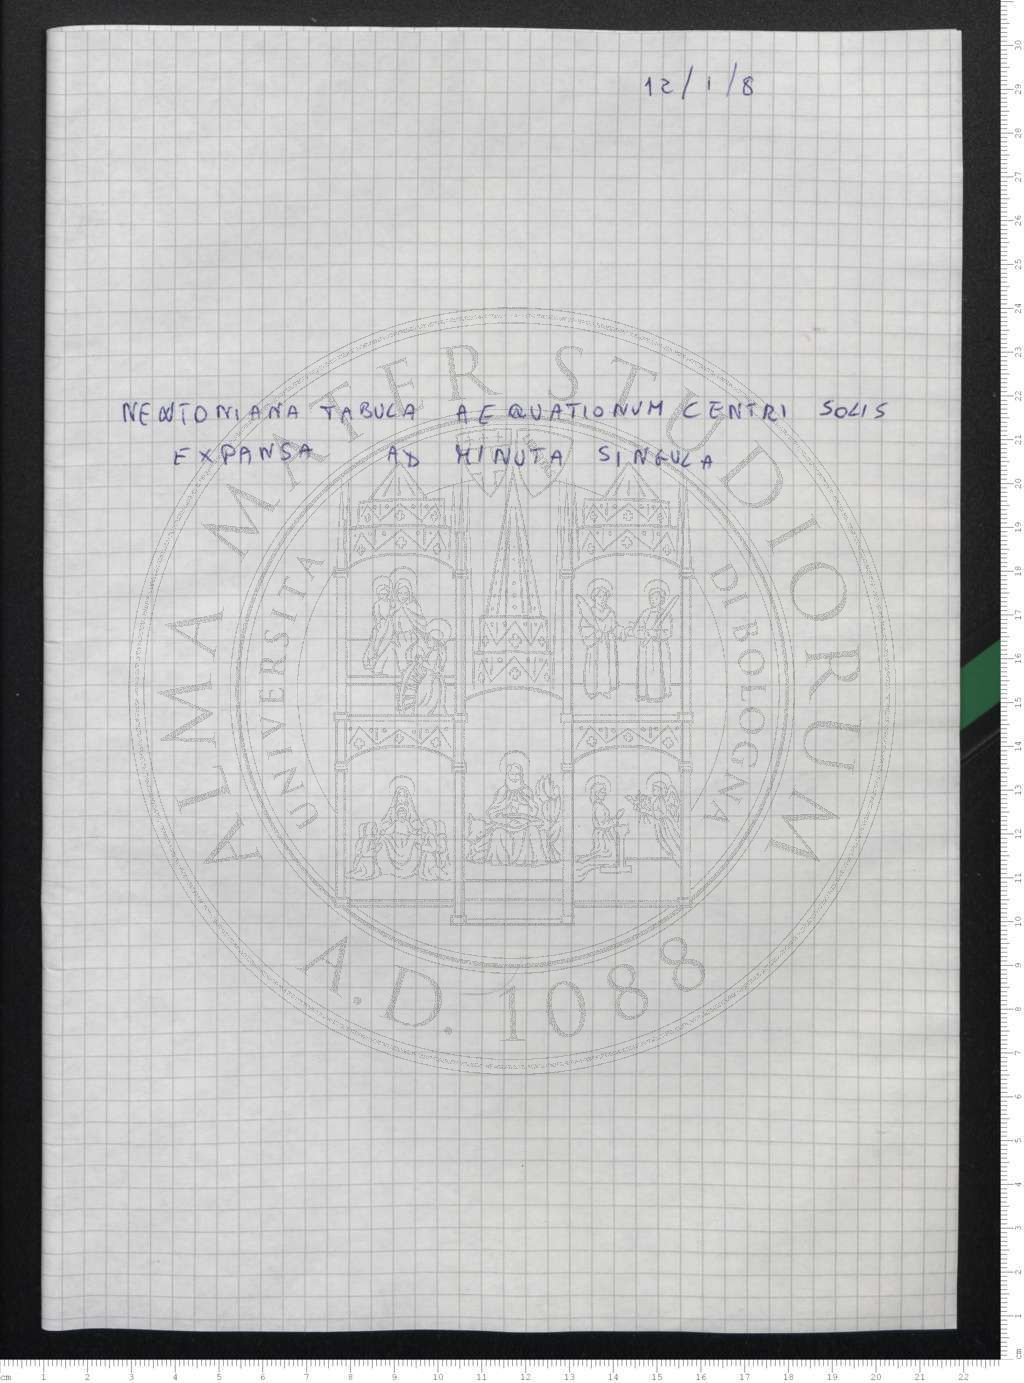 12/1/8
NEWTONIANA TABULA AEQUATIONUM CENTRI SOLIS
EXPANSA AD MINUTA SINGULA
ALMA MATER STUDIORUM
UNIVERSITA DI BOLOGNA
A.D. 1088
cm 1 2 3 4 5 6 7 8 9 10 11 12 13 14 15 16 17 18 19 20 21 22
cm 1 2 3 4 5 6 7 8 9 10 11 12 13 14 15 16 17 18 19 20 21 22 23 24 25 26 27 28 29 30